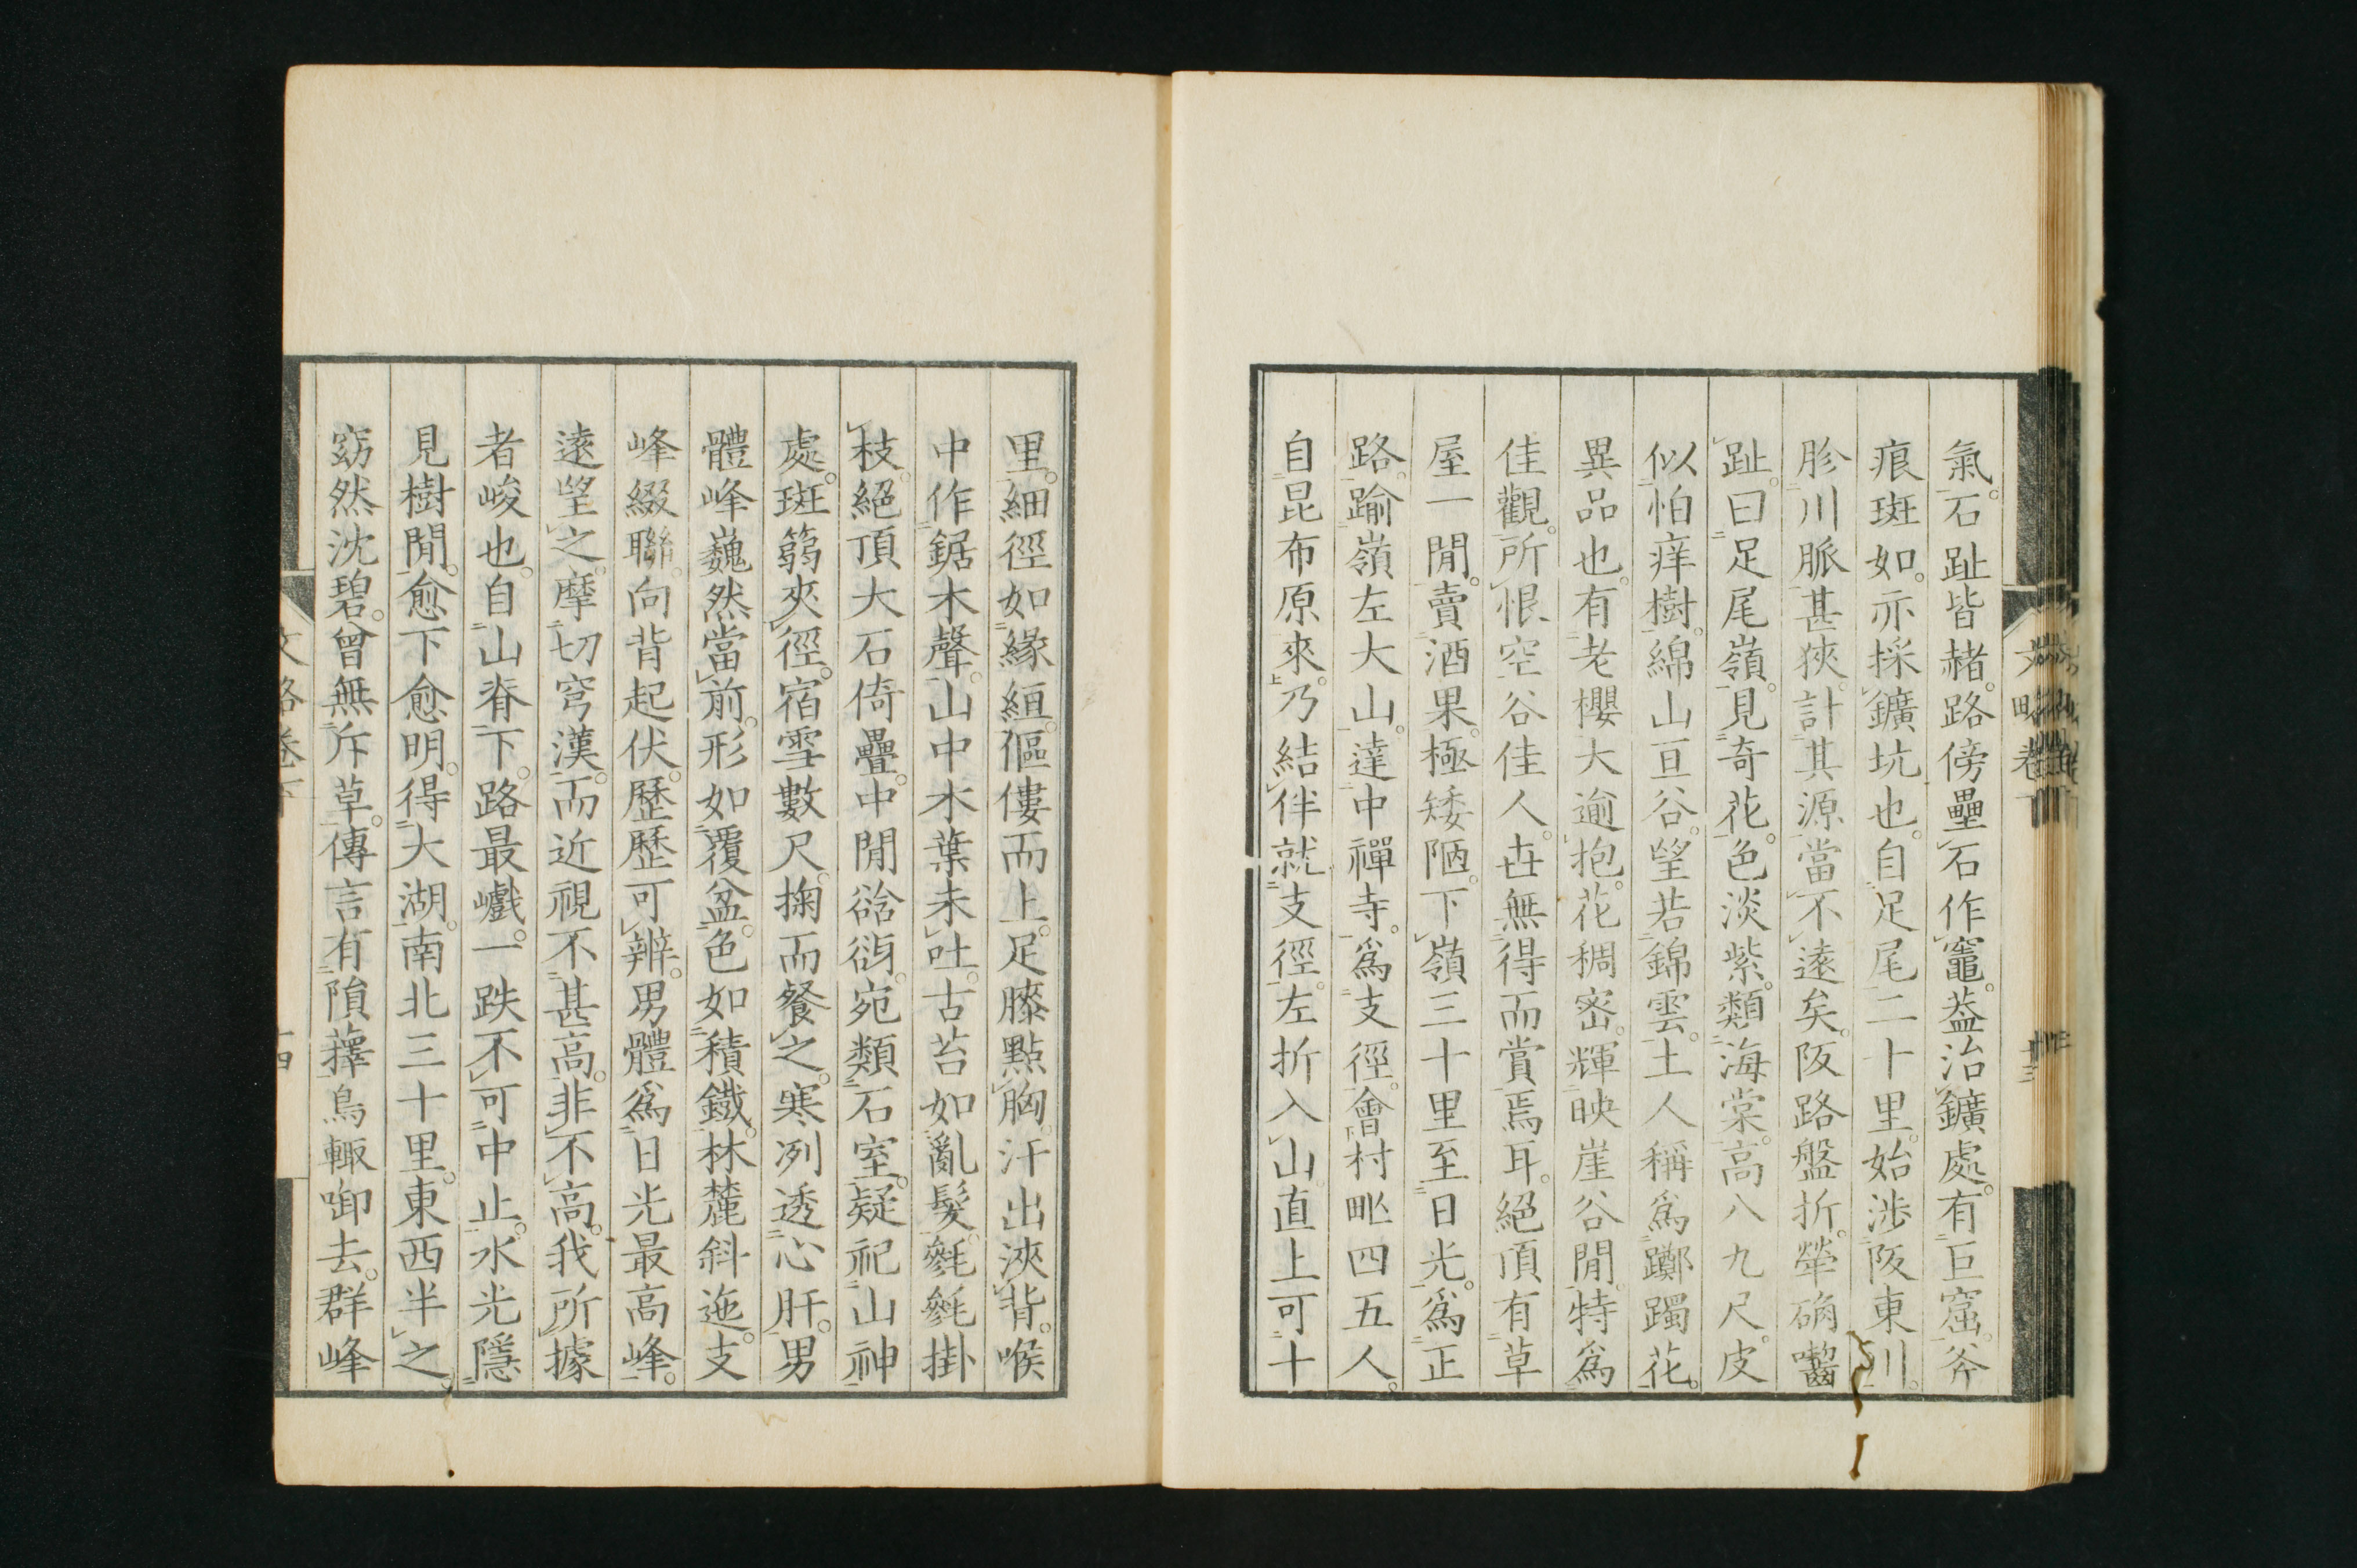 氣。石趾皆赭。路傍壘石作竈。葢治鑛處。有巨窟。斧
痕斑如。亦採鑛坑也。自足尾二十里。始渉阪東川。
胗川脈甚狹。計其源當不遠矣。阪路盤折。犖确嚙
趾。曰足尾嶺。見奇花。色淡紫。類海棠。高八九尺。皮
似怕痒樹。綿山亘谷。望若錦雲。土人稱爲躑躅花。
異品也。有老櫻大逾抱。花稠密。輝映崖谷閒。特爲
佳觀。所恨空谷佳人。世無得而賞焉耳。絕頂有草
屋一閒。賣酒果。極矮陋。下嶺三十里至日光。爲正
路。踰嶺左大山。達中禪寺。爲支徑。會村甿四五人。
自昆布原來。乃結伴就支徑。左折入山。直上可十
里。細徑如緣絙。傴僂而上。足膝點胸。汗出浹背。喉
中作鋸木聲。山中木葉未吐。古苔如亂髮。毿毿掛
枝。絕頂大石倚疊。中閒谽谺。宛類石室。疑祀山神
處。斑篛夾徑。宿雪數尺。掬而餐之。寒冽透心肝。男
體峰巍然當前。形如覆盆。色如積鐵。林麓斜迤。支
峰綴聯。向背起伏。歷歷可辨。男體爲日光最高峰。
遠望之。摩切穹漢。而近視不甚高。非不高。我所據
者峻也。自山脊下。路最巇。一跌不可中止。水光隱
見樹閒。愈下愈明。得大湖。南北三十里。東西半之。
窈然沈碧。曾無斥草。傳言有隕蘀鳥輙啣去。群峰
文略卷下
十三
文略卷下
十四